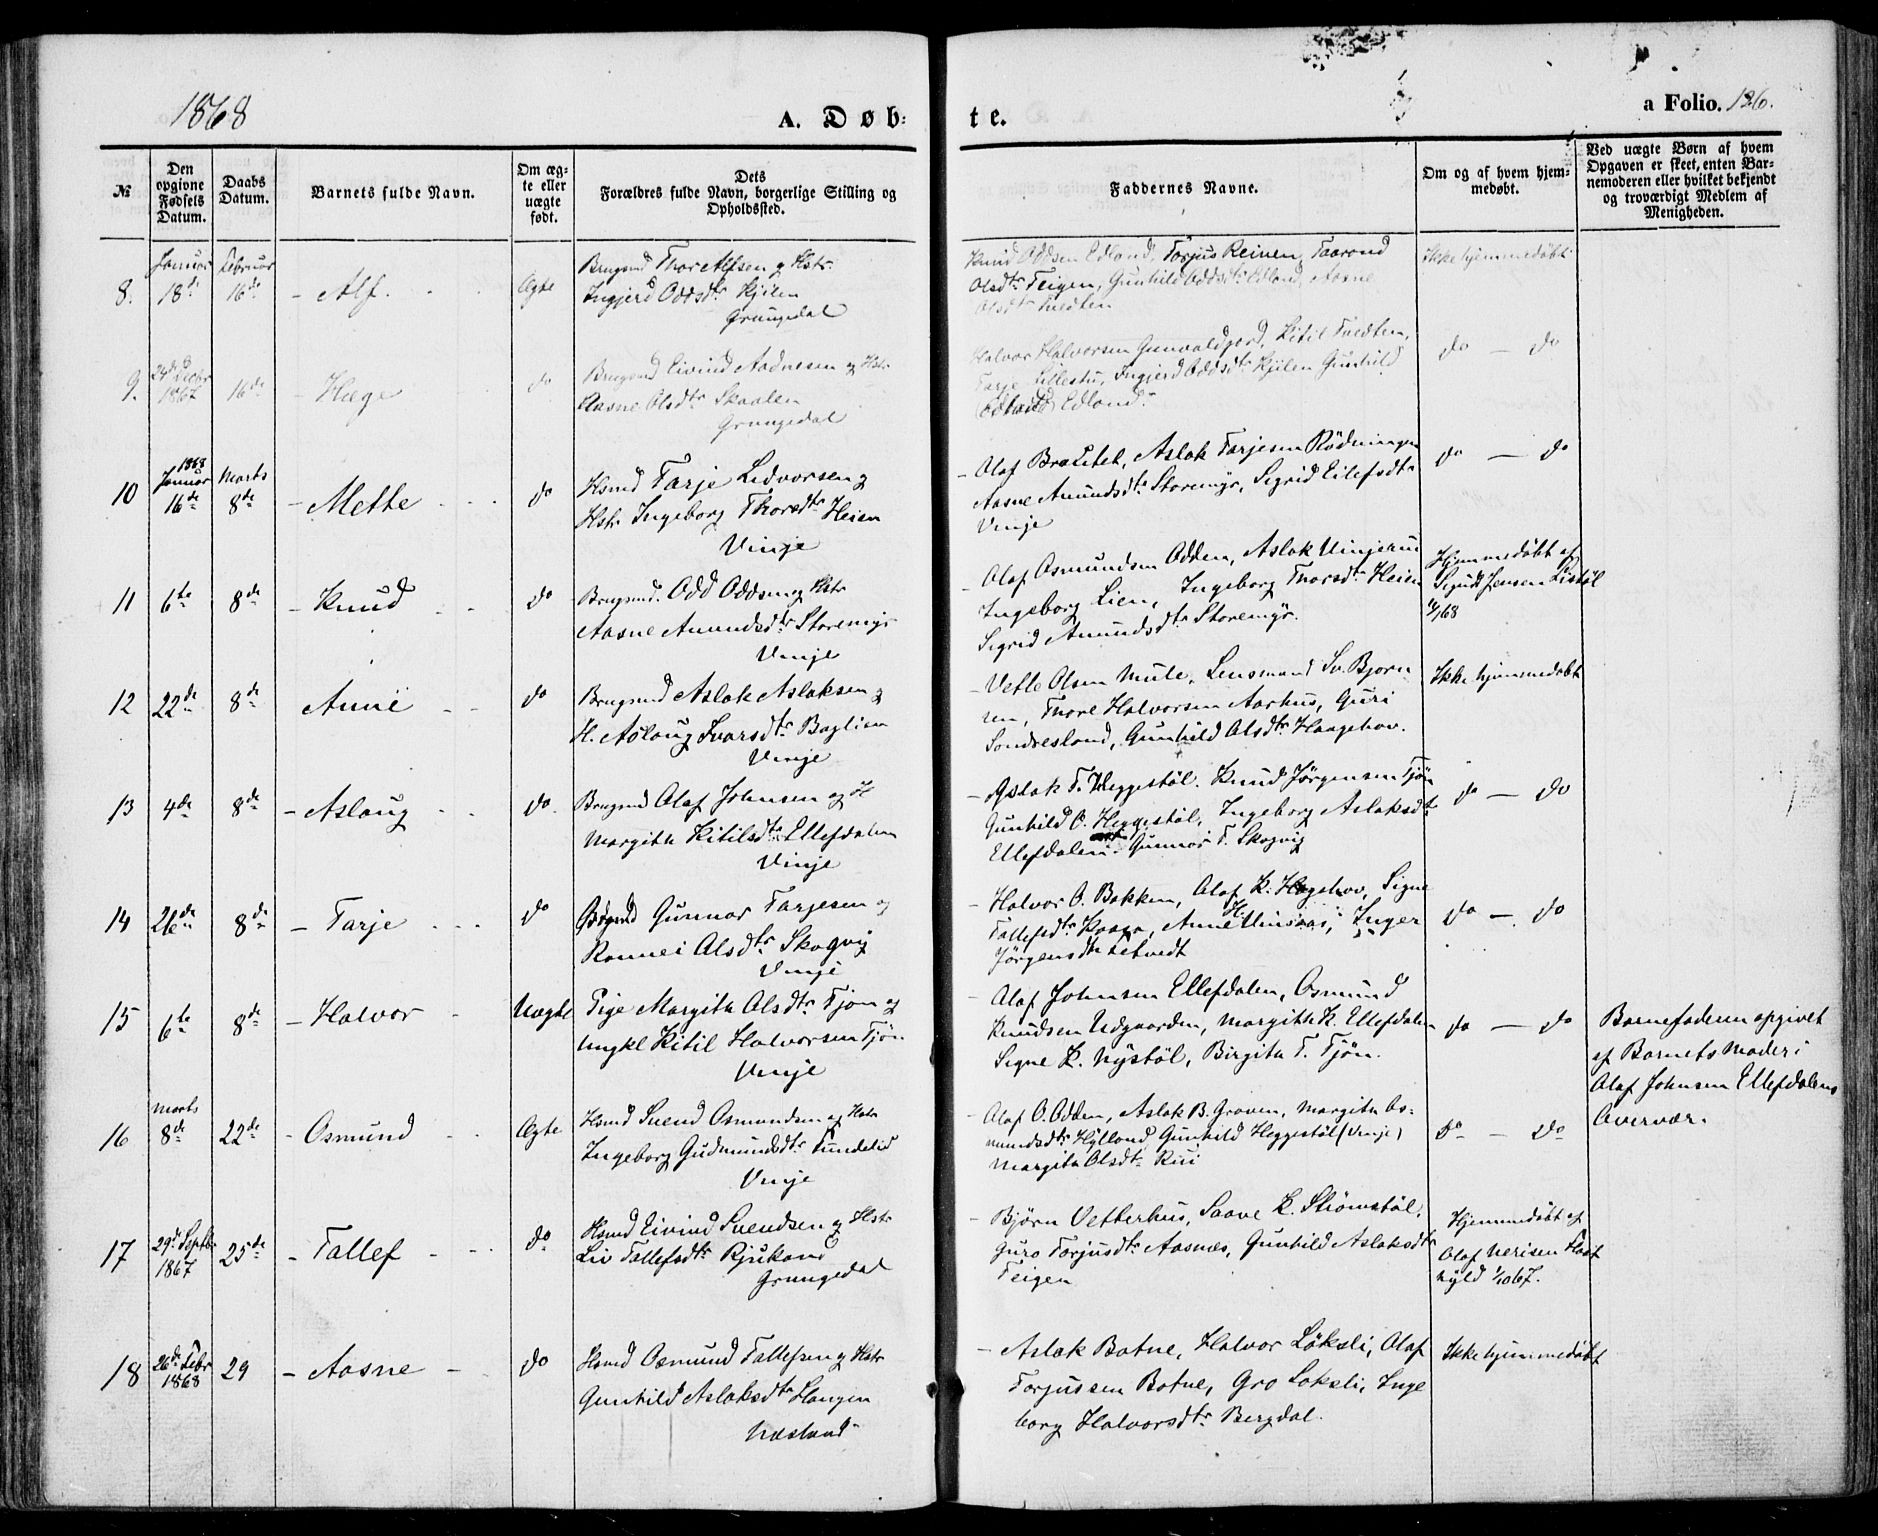 1868
A. Døb-
te.
a Folio. 126.
№
Den opgivne Fødsels Datum.
Daabs Datum.
Barnets fulde Navn.
Om ægte eller uægte født.
Dets
Forældres fulde Navn, borgerlige Stilling og
Opholdssted.
Faddernes Navne.
Om og af hvem hjem-
medøbt.
Ved uægte Børn af hvem
Opgaven er skeet, enten Bar-
nemoderen eller hvilket bekjendt
og troværdigt Medlem af
Menigheden.
8.
Januar
18de
Februar
16de
- Alf.
Ægte
Brugsmd Thor Alfsen og Hstr.
Ingjerd Oddsdtr Kjilen
Grungedal
Knud Oddsen Edland, Torjus Reinen, Taarond
Olsdtr Teigen, Gunhild Oddsdtr Edland, Aasne
Olsdtr Tvedten
Ikke hjemmedøbt.
9.
24de Decbr
1867
16de
- Hæge
do
Brugsmd Eivind Aadnesen og Hstr
Aasne Olsdtr Skaalen
Grungedal
Halvor Halvorsen Gunvaldjord, Kitil Tvedten,
Tarje Lillestu, Ingjerd Oddsdtr Kjilen Gunhild
Edland.
do — do
10
1868
Januar
16de
Marts
8de
- Mette
do
Hsmd Tarje Lidvorsen og
Hstr Ingeborg Thorsdtr Heien
Vinje
- Olaf Brautet, Aslak Tarjesen Rödningen
Aasne Amundsdtr Storemyr, Sigrid Eilefsdtr
Vinje
do — do
11
6te
8de
- Knud
do
Brugsmd. Odd Oddsen og Hstr
Aasne Amundsdtr Storemyr
Vinje
- Olaf Osmundsen Odden, Aslak Vinjerui
Ingeborg Lien, Ingeborg Thorsdtr Heien
Sigrid Amundsdtr Storemyr.
Hjemmedøbt af
Sigurd Jensen Listöl
12
22de
8de
Anne
do
Brugsmd Aslak Aslaksen og
H. Aslaug Ivarsdtr Boglien
Vinje
- Vetle Olsen Mule, Lensmand Sv. Bjørn
sen, Thore Halvorsen Aarhus, Guri
Sondresland, Gunhild Olsdtr Haagehov.
Ikke hjemmedøbt
13
4de
8de
- Aslaug
do
Brugsmd Olaf Johnsen og H
Margith Kitilsdtr Ellefsdalen
Vinje
- Aslak T. Heggestöl. Knud Jörgensen Tjön
Gunhild O. Heggestöl, Ingeborg Aslaksdtr
Ellefdalen. Gunnar T. Skogvig
do — do
14
26de
8de
- Tarje
do
Gunnar Tarjesen og
Ronnei Olsdtr Skogvig
Vinje
- Halvor O. Bakken, Olaf K. Hagehov, Signe
Tallefsdtr Kaasa, Anne H. Vinsaas, Inger
Jörgensdtr Letvedt
do — do
15
6te
8de
- Halvor
Uægte
Pige Margith Olsdtr Tjön og
Ungkl Kitil Halvorsen Tjön
Vinje
- Olaf Johnsen Ellefdalen, Osmund
Knudsen Udgaarden, Margith K. Ellefdalen
Signe K. Nystöl, Birgith T. Tjön.
do — do
Barnefaderen opgivet
af Barnets Moder i
Olaf Johnsen Ellefdalens
Overvær.
16
Marts
8de
22de
- Osmund
Ægte
Hsmd Svend Osmundsen og Hstr
Ingeborg Gudmundsdtr Tundelid
Vinje
- Olaf O. Odden, Aslak B. Groven, Margith Os-
mundsdtr Hylland, Gunhild Heggestöl (Vinje)
Margith Olsdtr Rui
do — do
17
29de Septbr
1867
25de
- Tallef
do
Hsmd Eivind Svendsen og Hstr
Liv Tallefsdtr Rjukand
Grungedal
- Bjørn Vetterhus, Saave K. Strömstöl,
Guro Torjusdtr Aasnæs, Gunhild Aslaksdtr
Teigen
Hjemmedøbt af
Olaf Nerisen Flat
hyld 1/10 67.
18
26de Febr
1868
29
- Aasne
do
Hsmd Osmund Tallefsen og Hstr
Gunhild Aslaksdtr Haugen
Næsland
- Aslak Botne, Halvor Löksli, Olaf
Torjussen Botne, Gro Loksli, Inge
borg Halvorsdtr Bergdal.
Ikke hjemmedøbt